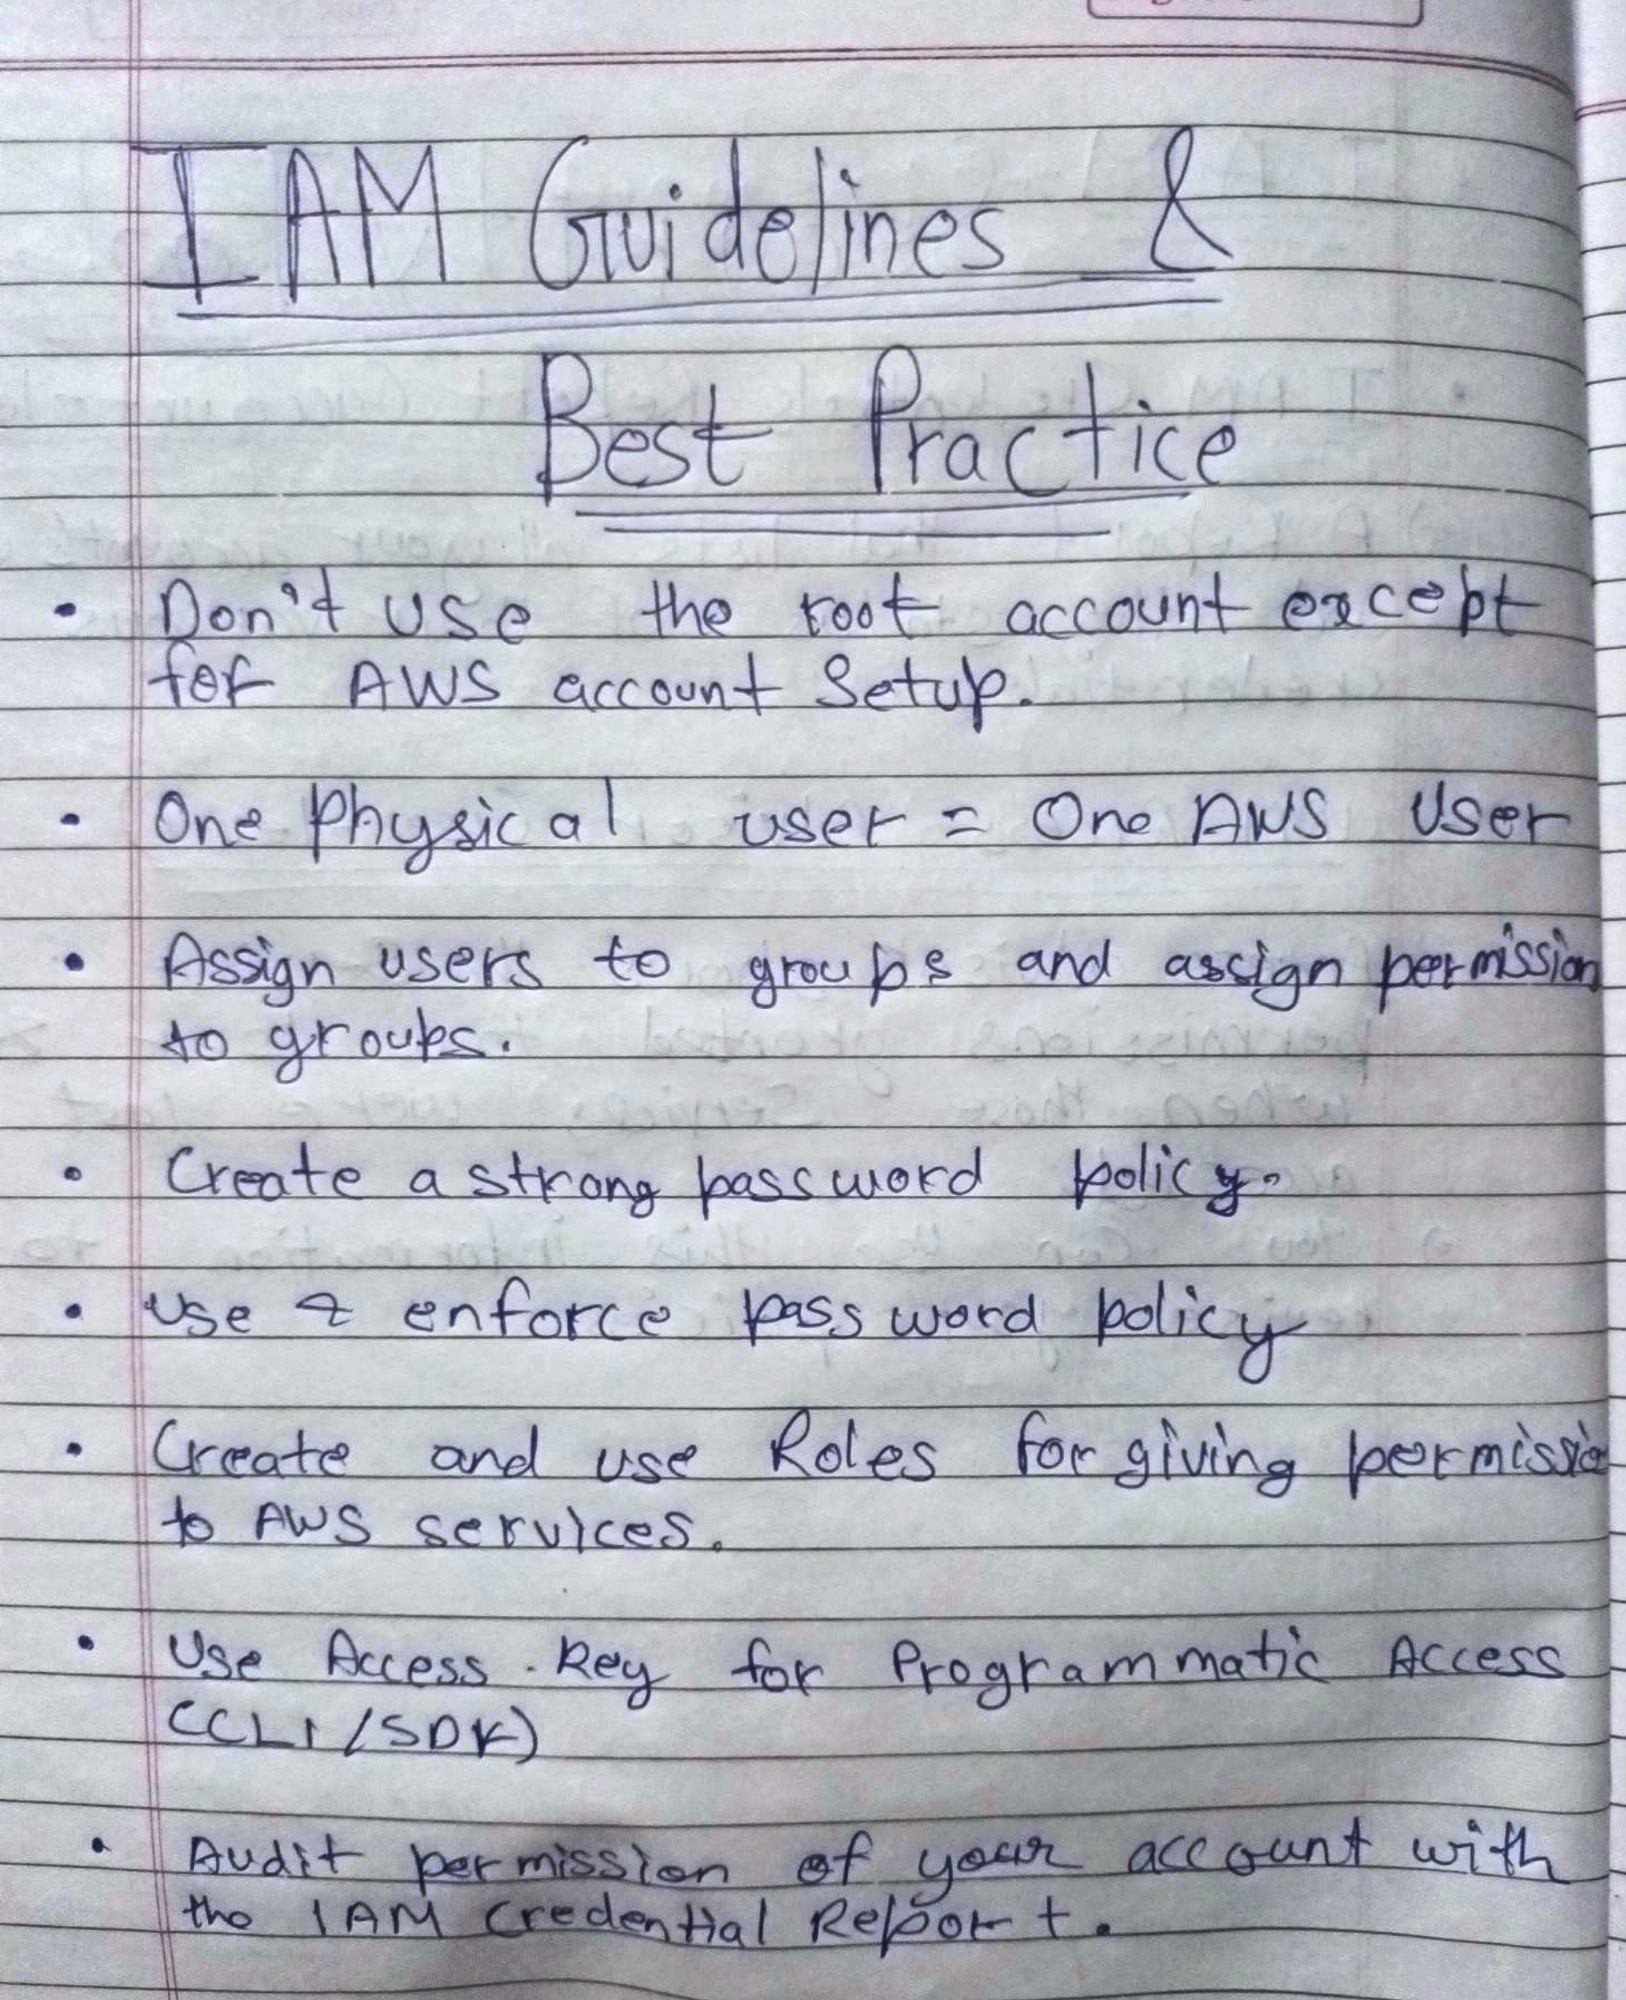 IAM Guidelines &
Best Practice
• Don't use the root account except
for AWS account Setup.
• One Physical user = One AWS User
• Assign users to groups and assign permission
to groups.
• Create a strong password policy.
• Use & enforce password policy
• Create and use Roles for giving permissio
to AWS services.
• Use Access Key for Programmatic Access
(CLI/SDK)
• Audit permission of your account with
the IAM Credential Report.